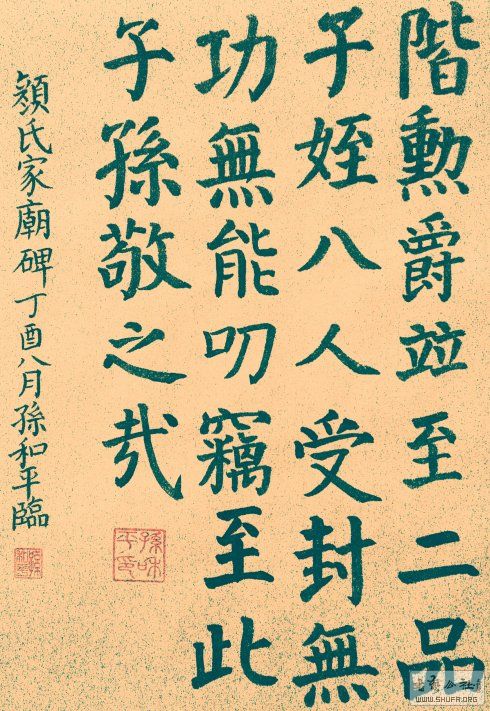 階勳爵竝至二品
子姪八人受封無
功無能叨竊至此
子孫敬之哉
顏氏家廟碑丁酉八月孫和平臨
孫和平印
WWW.SHUFA.ORG